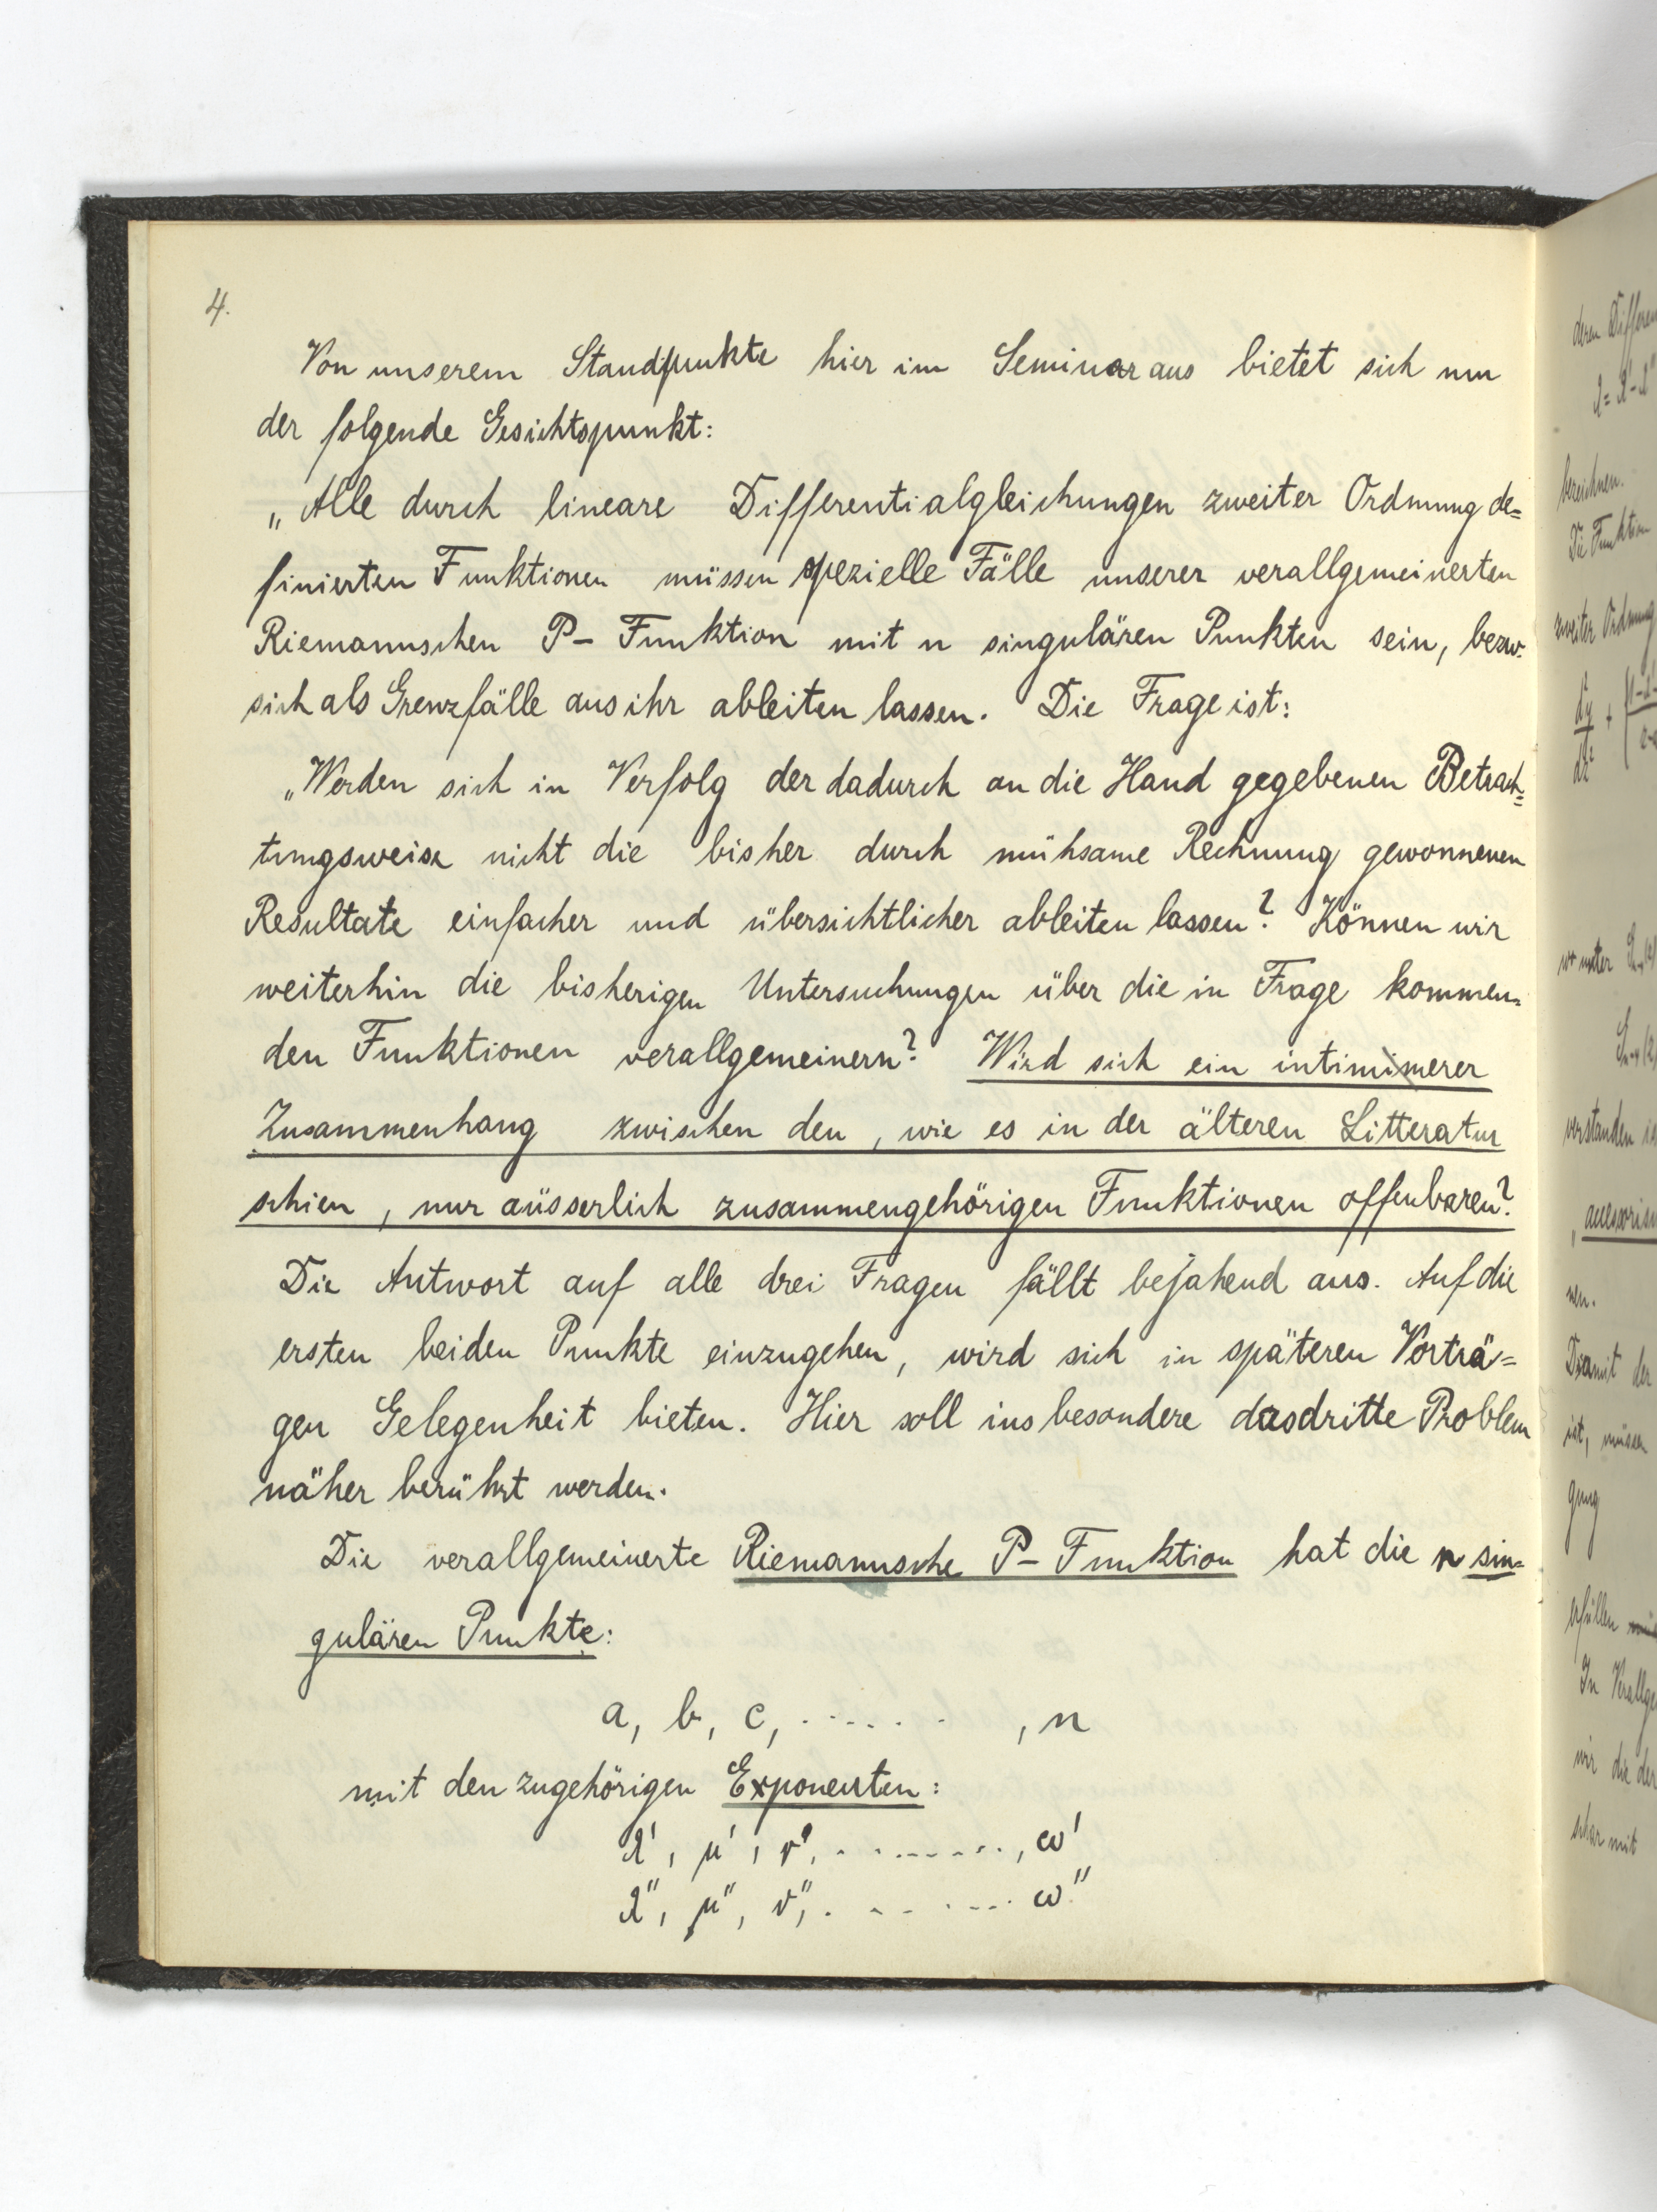 4.
Von unserem Standpunkte hier im Seminar aus bietet sich nun
der folgende Gesichtspunkt:
„Alle durch lineare Differentialgleichungen zweiter Ordnung de=
finierten Funktionen müssen spezielle Fälle unserer verallgemeinerten
Riemannschen P- Funktion mit n singulären Punkten sein, bezw.
sich als Grenzfälle aus ihr ableiten lassen. Die Frage ist:
„Werden sich in Verfolg der dadurch an die Hand gegebenen Betrach=
tungsweise nicht die bisher durch mühsame Rechnung gewonnenen
Resultate einfacher und übersichtlicher ableiten lassen? Können wir
weiterhin die bisherigen Untersuchungen über die in Frage kommen=
den Funktionen verallgemeinern? Wird sich ein intimerer
Zusammenhang zwischen den, wie es in der älteren Litteratur
schien, nur äusserlich zusammengehörigen Funktionen offenbaren?
Die Antwort auf alle drei Fragen fällt bejahend aus. Auf die
ersten beiden Punkte einzugehen, wird sich in späteren Vorträ=
gen Gelegenheit bieten. Hier soll insbesondere das dritte Problem
näher berührt werden.
Die verallgemeinerte Riemannsche P- Funktion hat die n sin=
gulären Punkte:
a, b, c, ......, n
mit den zugehörigen Exponenten:
λ', μ', ν', ........., ω'
λ'', μ'', ν'', ........ ω''
deren
λ = λ' - λ''
bezeichnen.
Die Funktion
zweiter Ordnung
wo unter
verstanden
nen.
Damit der
ist, müssen
gung
erfüllen
In
wir die der
schar mit